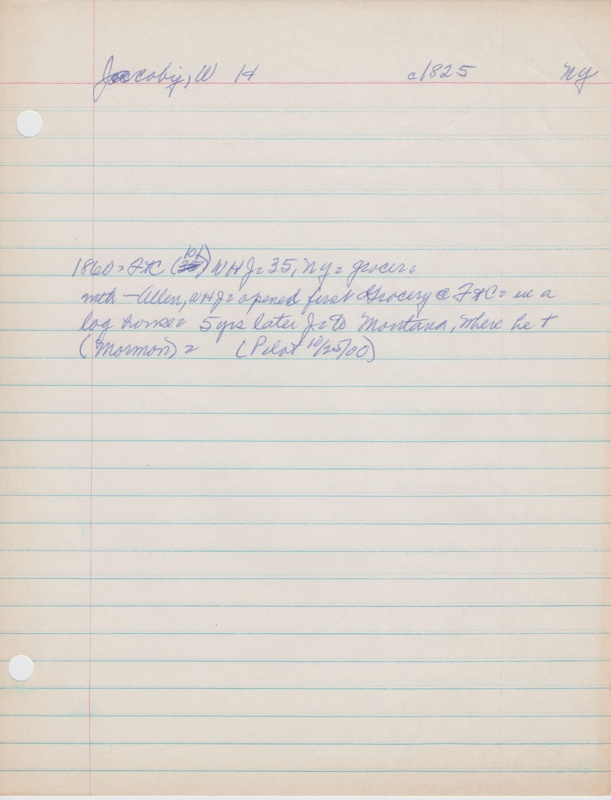 Jacoby, W H c1825 NY
1860= F+C (101) WHJ= 35, NY= grocer=
with - Allen, WHJ= opened first Grocery @ F+C= in a
log house= 5 yrs later J= to Montana, where he +
(Mormon) = (Pilot 10/25/00)